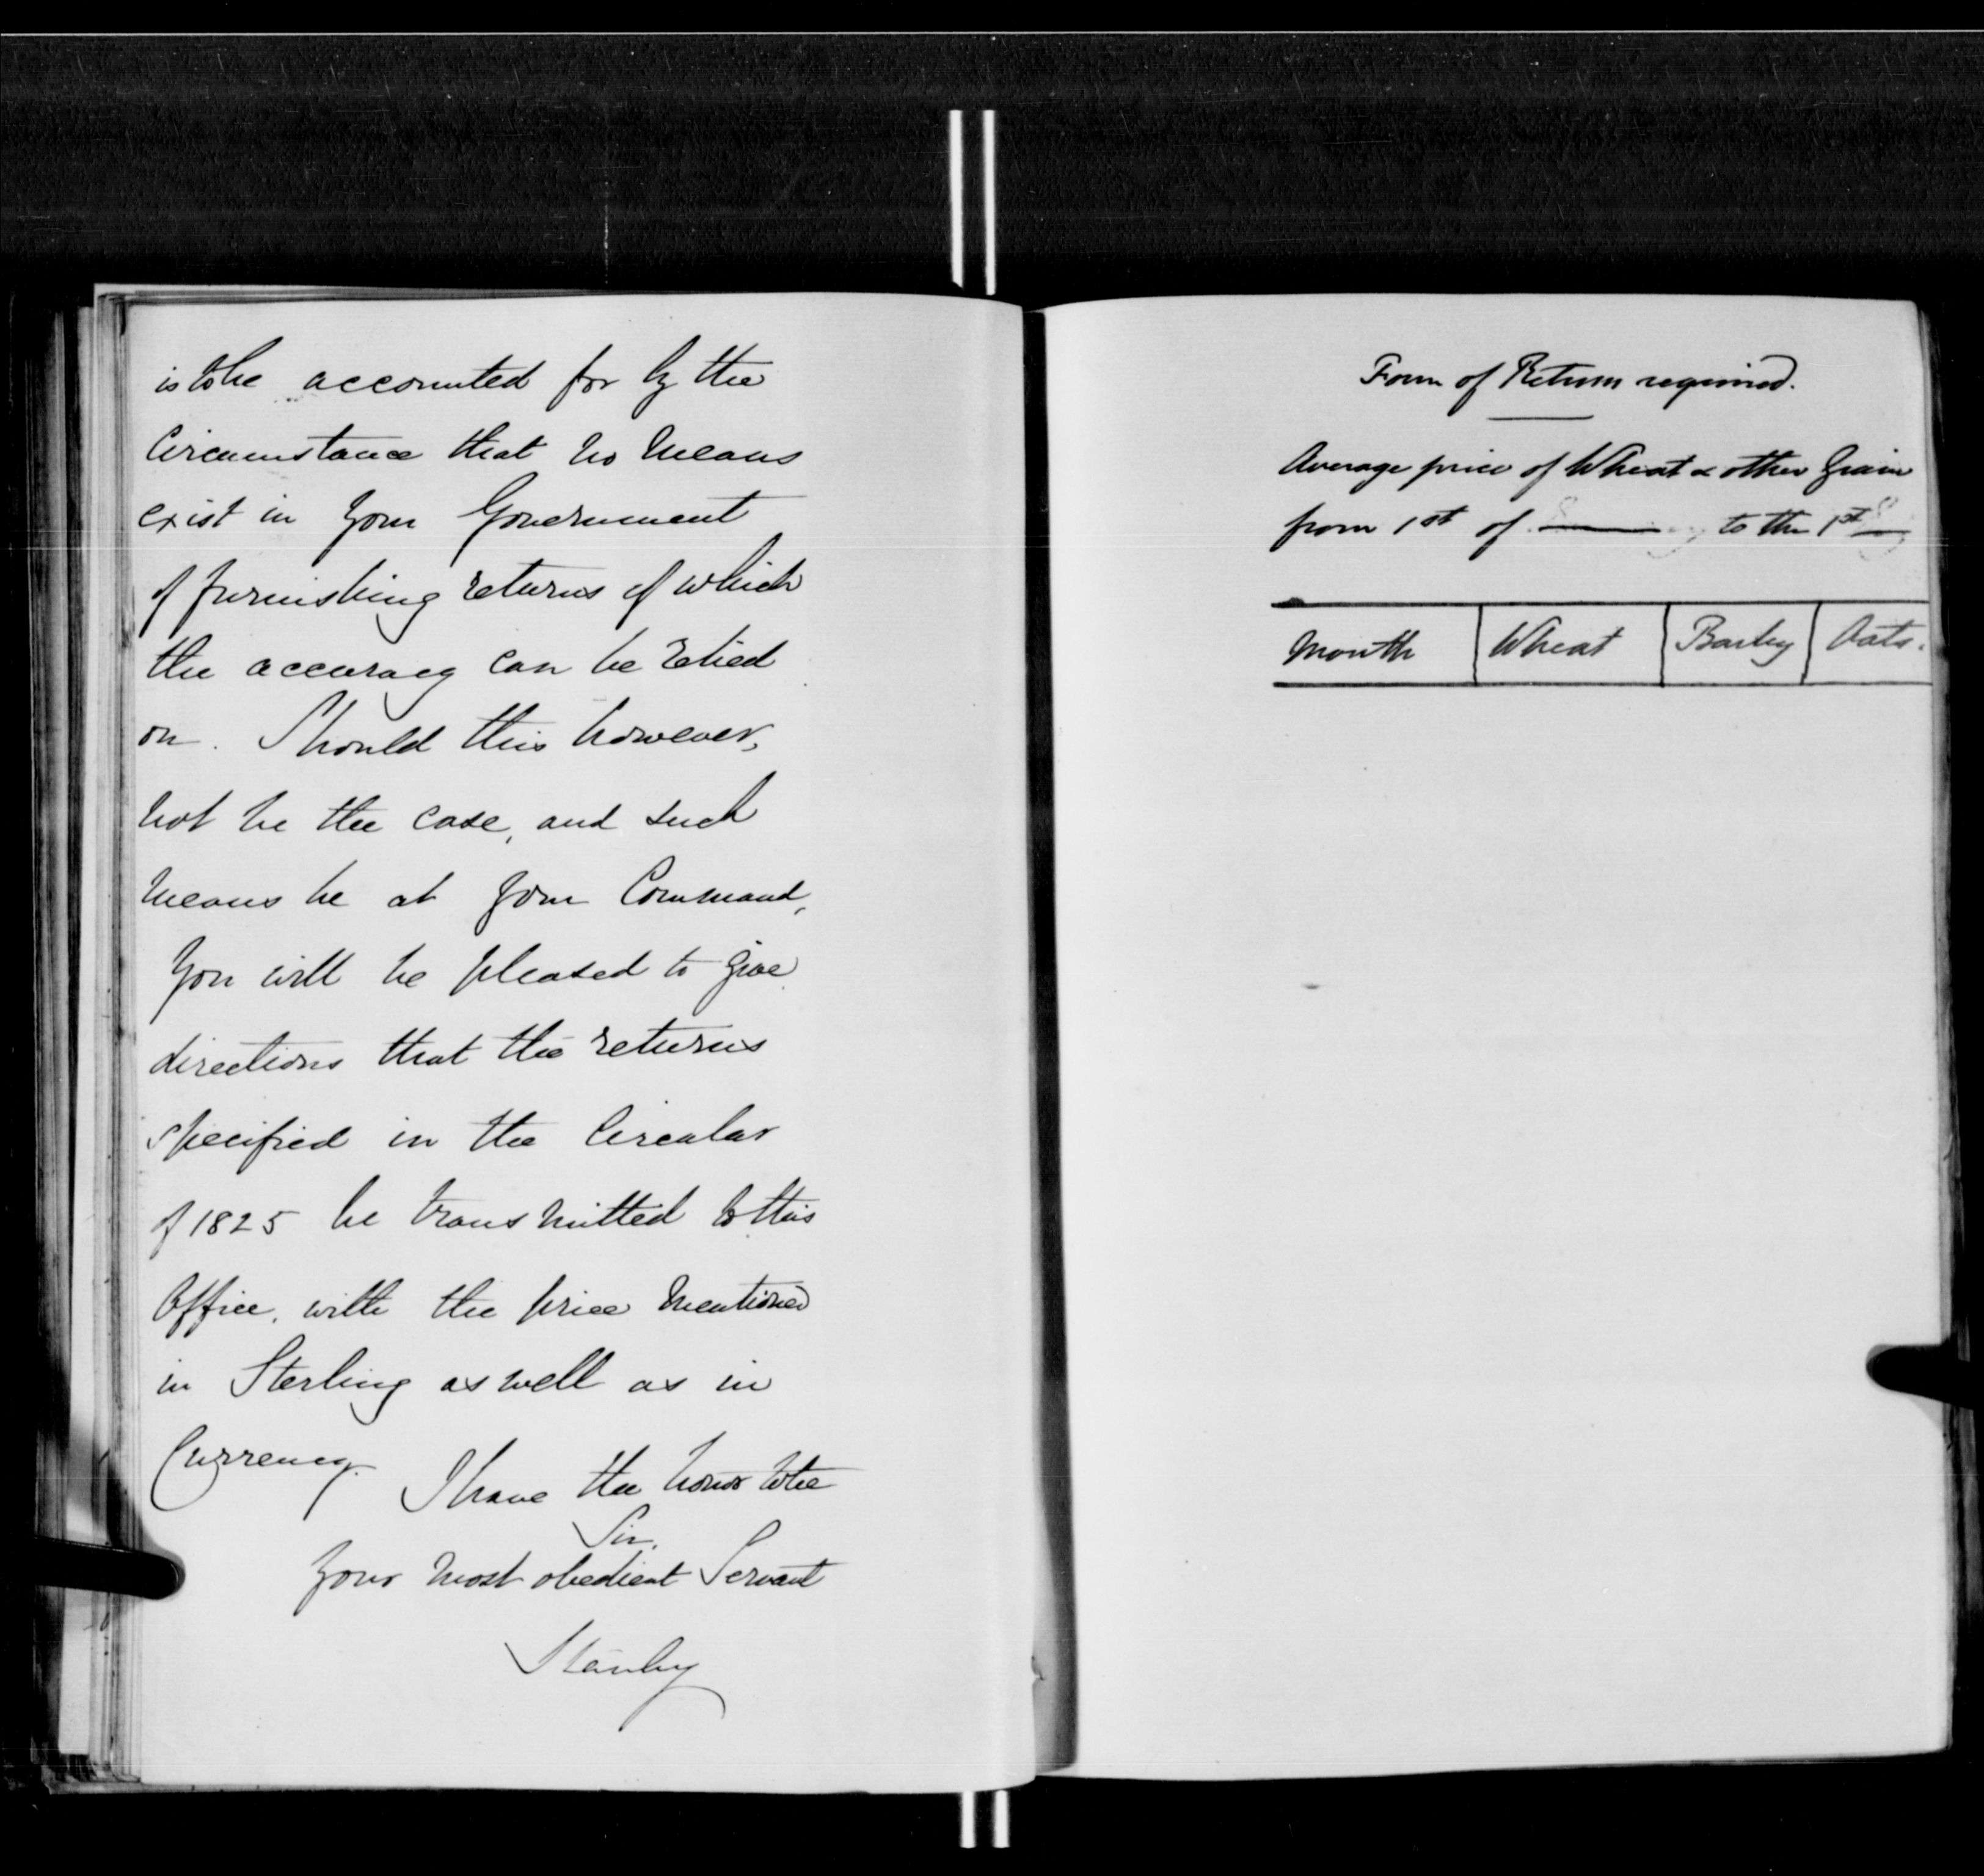 is to be accounted for by the
Circumstance that no means
exist in your Government
of furnishing returns of which
the accuracy can be relied
on. Should this however,
not be the case, and such
means be at your Command,
You will be pleased to give
directions that the returns
specified in the Circular
of 1825 be transmitted to this
Office, with the price mentioned
in Sterling as well as in
Currency.
I have the honor to be
Sir,
Your most obedient Servant
Stanley
Form of Return required.
Average price of Wheat & other Grain
from 1st of ——— to the 1st —
Month Wheat Barley Oats.